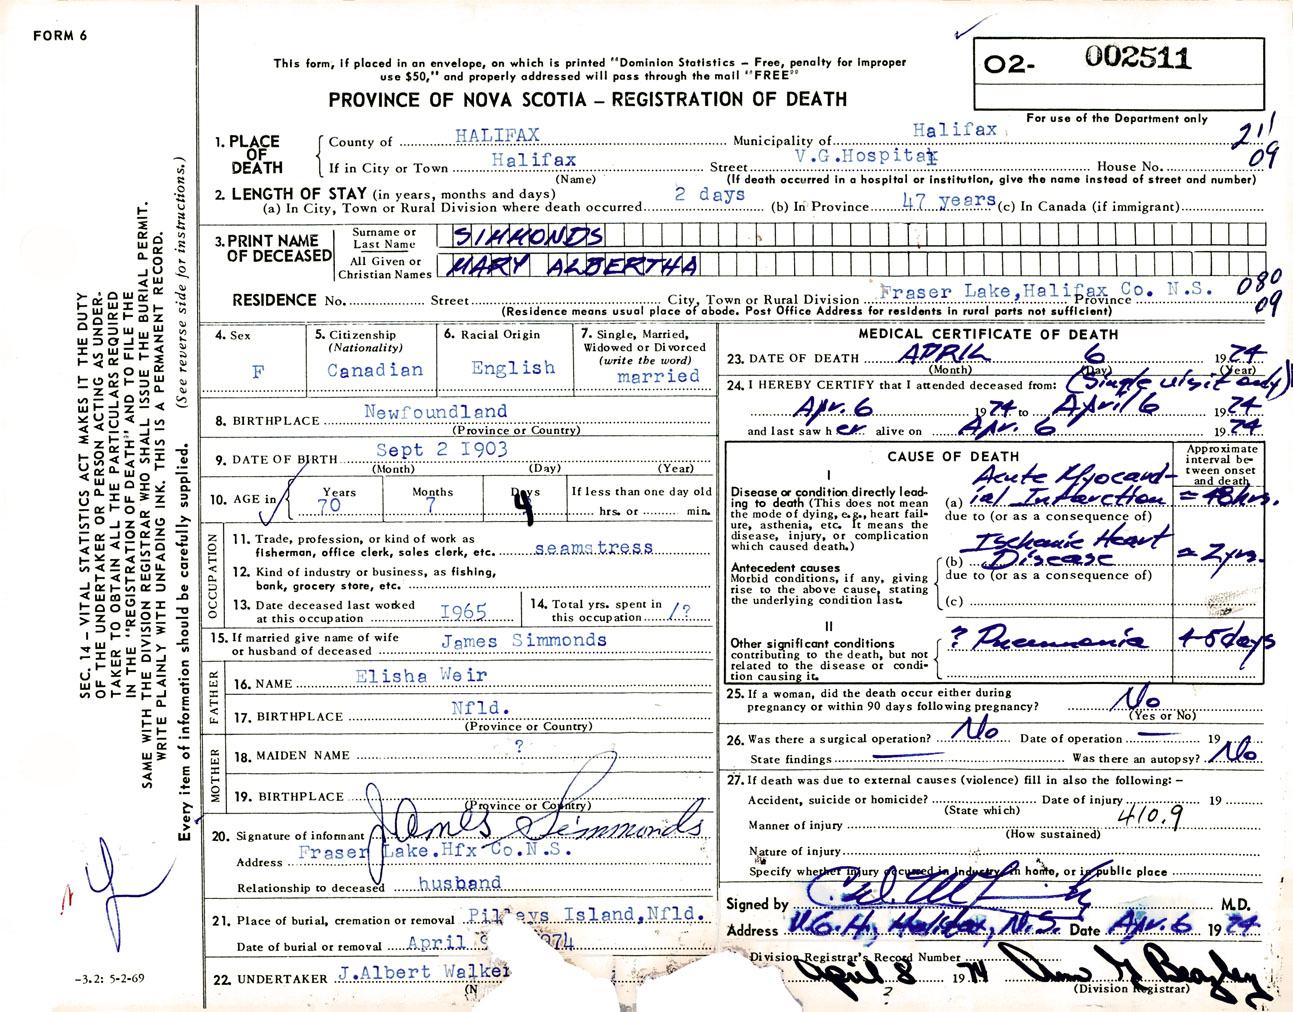 FORM 6
This form, if placed in an envelope, on which is printed "Dominion Statistics – Free, penalty for improper
use $50," and properly addressed will pass through the mail "FREE"
PROVINCE OF NOVA SCOTIA – REGISTRATION OF DEATH
O2- 002511
For use of the Department only
2 11
09
SEC. 14 – VITAL STATISTICS ACT MAKES IT THE DUTY
OF THE UNDERTAKER OR PERSON ACTING AS UNDER-
TAKER TO OBTAIN ALL THE PARTICULARS REQUIRED
IN THE "REGISTRATION OF DEATH" AND TO FILE THE
SAME WITH THE DIVISION REGISTRAR WHO SHALL ISSUE THE BURIAL PERMIT.
WRITE PLAINLY WITH UNFADING INK. THIS IS A PERMANENT RECORD.
Every item of information should be carefully supplied. (See reverse side for instructions.)
1. PLACE OF DEATH
County of HALIFAX Municipality of Halifax
If in City or Town Halifax Street V.G.Hospital House No.
(Name) (If death occurred in a hospital or institution, give the name instead of street and number)
2. LENGTH OF STAY (in years, months and days)
(a) In City, Town or Rural Division where death occurred 2 days (b) In Province 47 years (c) In Canada (if immigrant)
3. PRINT NAME OF DECEASED
Surname or Last Name SIMMONDS
All Given or Christian Names MARY ALBERTHA
RESIDENCE No. Street City, Town or Rural Division Fraser Lake, Halifax Co. N.S. Province
080
09
(Residence means usual place of abode. Post Office Address for residents in rural parts not sufficient)
4. Sex F
5. Citizenship (Nationality) Canadian
6. Racial Origin English
7. Single, Married, Widowed or Divorced (write the word) married
8. BIRTHPLACE Newfoundland
(Province or Country)
9. DATE OF BIRTH Sept 2 1903
(Month) (Day) (Year)
10. AGE in Years 70 Months 7 Days 4 If less than one day old hrs. or min.
OCCUPATION
11. Trade, profession, or kind of work as
fisherman, office clerk, sales clerk, etc. seamstress
12. Kind of industry or business, as fishing,
bank, grocery store, etc.
13. Date deceased last worked at this occupation 1965
14. Total yrs. spent in this occupation 1?
15. If married give name of wife
or husband of deceased James Simmonds
FATHER
16. NAME Elisha Weir
17. BIRTHPLACE Nfld.
(Province or Country)
MOTHER
18. MAIDEN NAME ?
19. BIRTHPLACE
(Province or Country)
20. Signature of informant James Simmonds
Address Fraser Lake.Hfx Co.N.S.
Relationship to deceased husband
21. Place of burial, cremation or removal Pilleys Island, Nfld.
Date of burial or removal April 9 1974
22. UNDERTAKER J.Albert Walker
-3.2: 5-2-69
MEDICAL CERTIFICATE OF DEATH
23. DATE OF DEATH APRIL 6 1974
(Month) (Day) (Year)
24. I HEREBY CERTIFY that I attended deceased from: (Single visit only)
Apr. 6 1974 to April 6 1974
and last saw her alive on Apr. 6 1974
CAUSE OF DEATH
Approximate interval between onset and death
I
Disease or condition directly lead-
ing to death (This does not mean
the mode of dying, e.g., heart fail-
ure, asthenia, etc. It means the
disease, injury, or complication
which caused death.)
(a) Acute Myocardial Infarction = 48 hrs.
due to (or as a consequence of)
Antecedent causes
Morbid conditions, if any, giving
rise to the above cause, stating
the underlying condition last.
(b) Ischemic Heart Disease = 2 yrs.
due to (or as a consequence of)
(c)
II
Other significant conditions
contributing to the death, but not
related to the disease or condi-
tion causing it.
? Pneumonia 4-5 days
25. If a woman, did the death occur either during
pregnancy or within 90 days following pregnancy? No
(Yes or No)
26. Was there a surgical operation? No Date of operation — 19
State findings — Was there an autopsy? No
27. If death was due to external causes (violence) fill in also the following: –
Accident, suicide or homicide? Date of injury 19
(State which)
Manner of injury 410.9
(How sustained)
Nature of injury
Specify whether injury occurred in industry, in home, or in public place
Signed by M.D.
Address V.G.H, Halifax, N.S. Date Apr. 6 1974
Division Registrar's Record Number
April 8 1974
(Division Registrar)
?